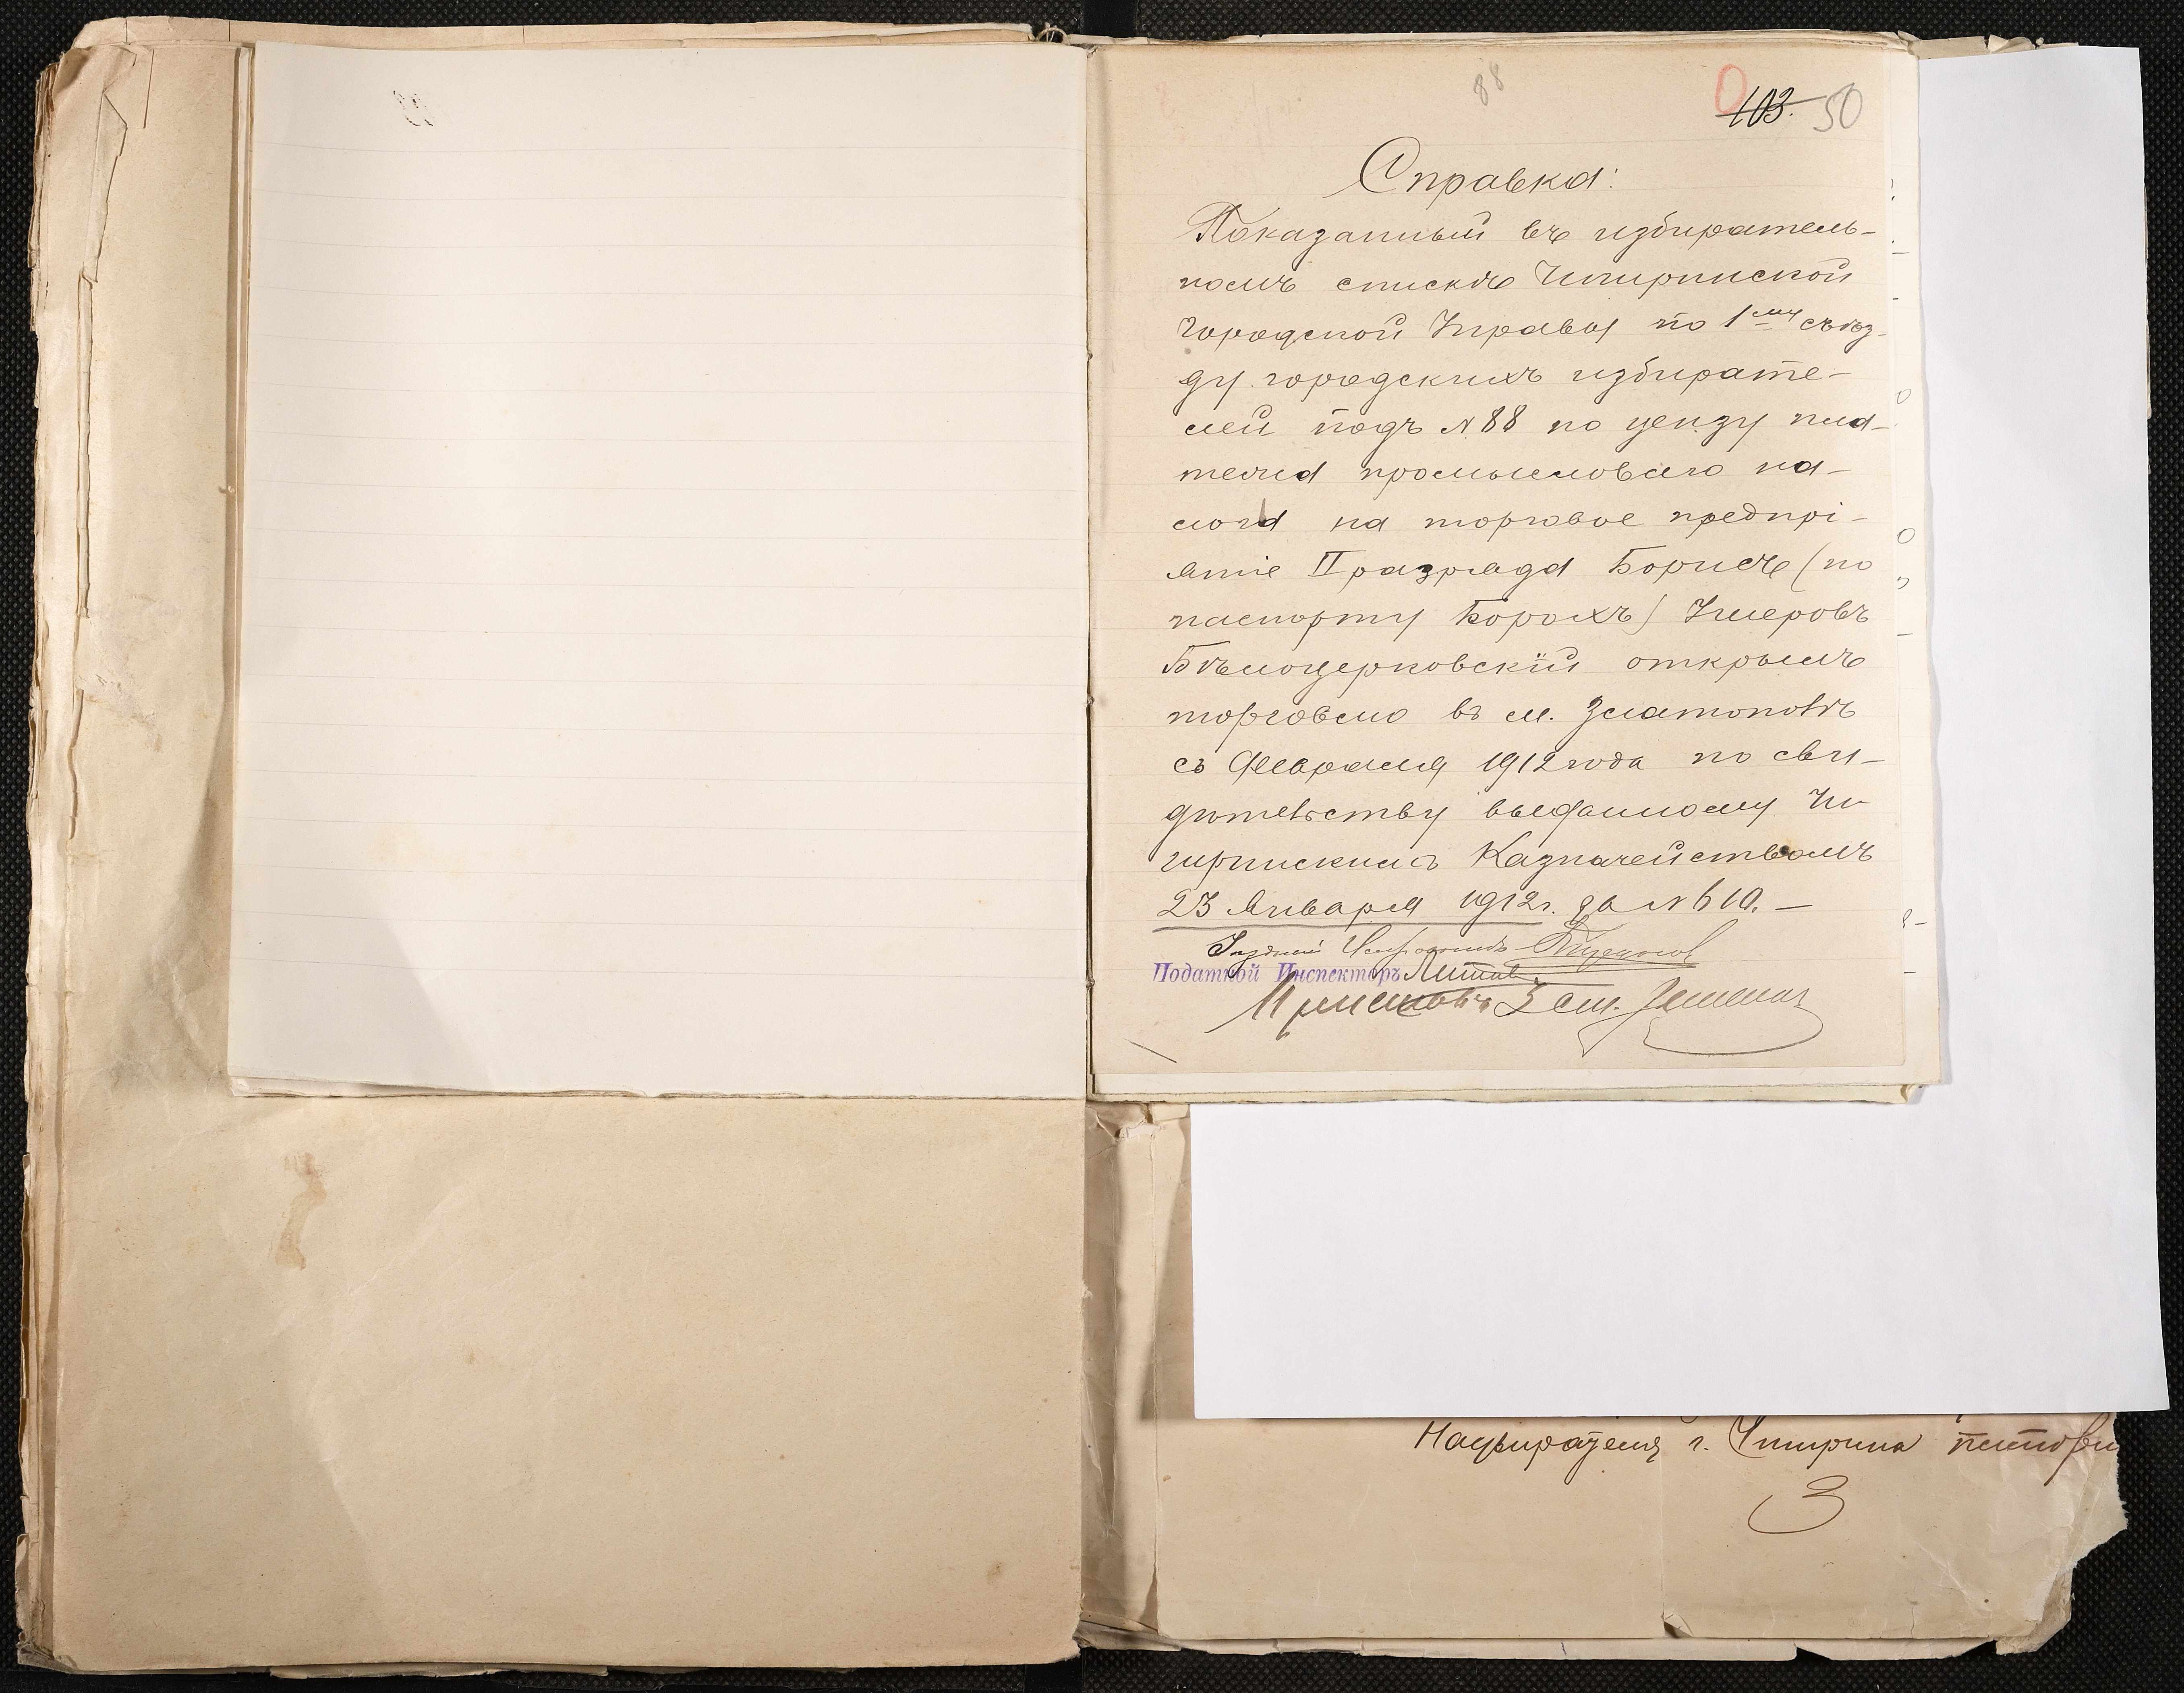 88
103. 50
Справка:
Показанный въ избиратель-
номъ спискѣ Чигиринской
Городской Управы по 1му съѣз-
ду городскихъ избирате-
лей подъ № 88 по цензу пла-
тельщика промысловаго на-
лога на торговое предпрі-
ятіе II разряда Борисъ (по
паспорту Борохъ) Умеровъ
Бѣлоцерковскій открылъ
торговлю въ м. Златополѣ
съ Февраля 1912 года по сви-
дѣтельству выданному Чи-
гиринскимъ Казначействомъ
23 Января 1912 г. за № 610. —
Уѣздный
Податной Инспекторъ
3 ст.
Надзирателя г. Чигирина
3